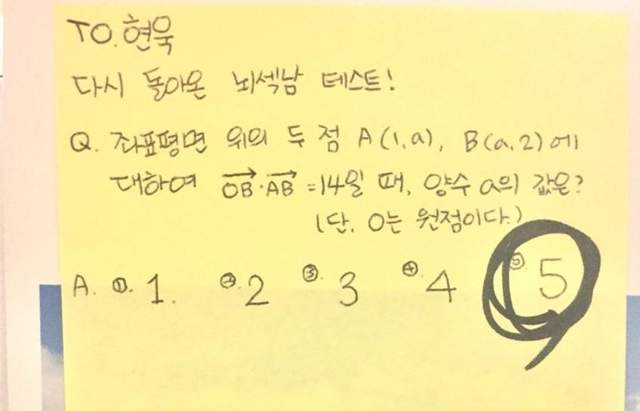 TO. 현욱
다시 돌아온 뇌섹남 테스트!
Q. 좌표평면 위의 두 점 A(1, a), B(a, 2)에
대하여 OB·AB = 14일 때, 양수 a의 값은?
(단, O는 원점이다.)
A. ①. 1. ②. 2 ③. 3 ④. 4 ⑤. 5